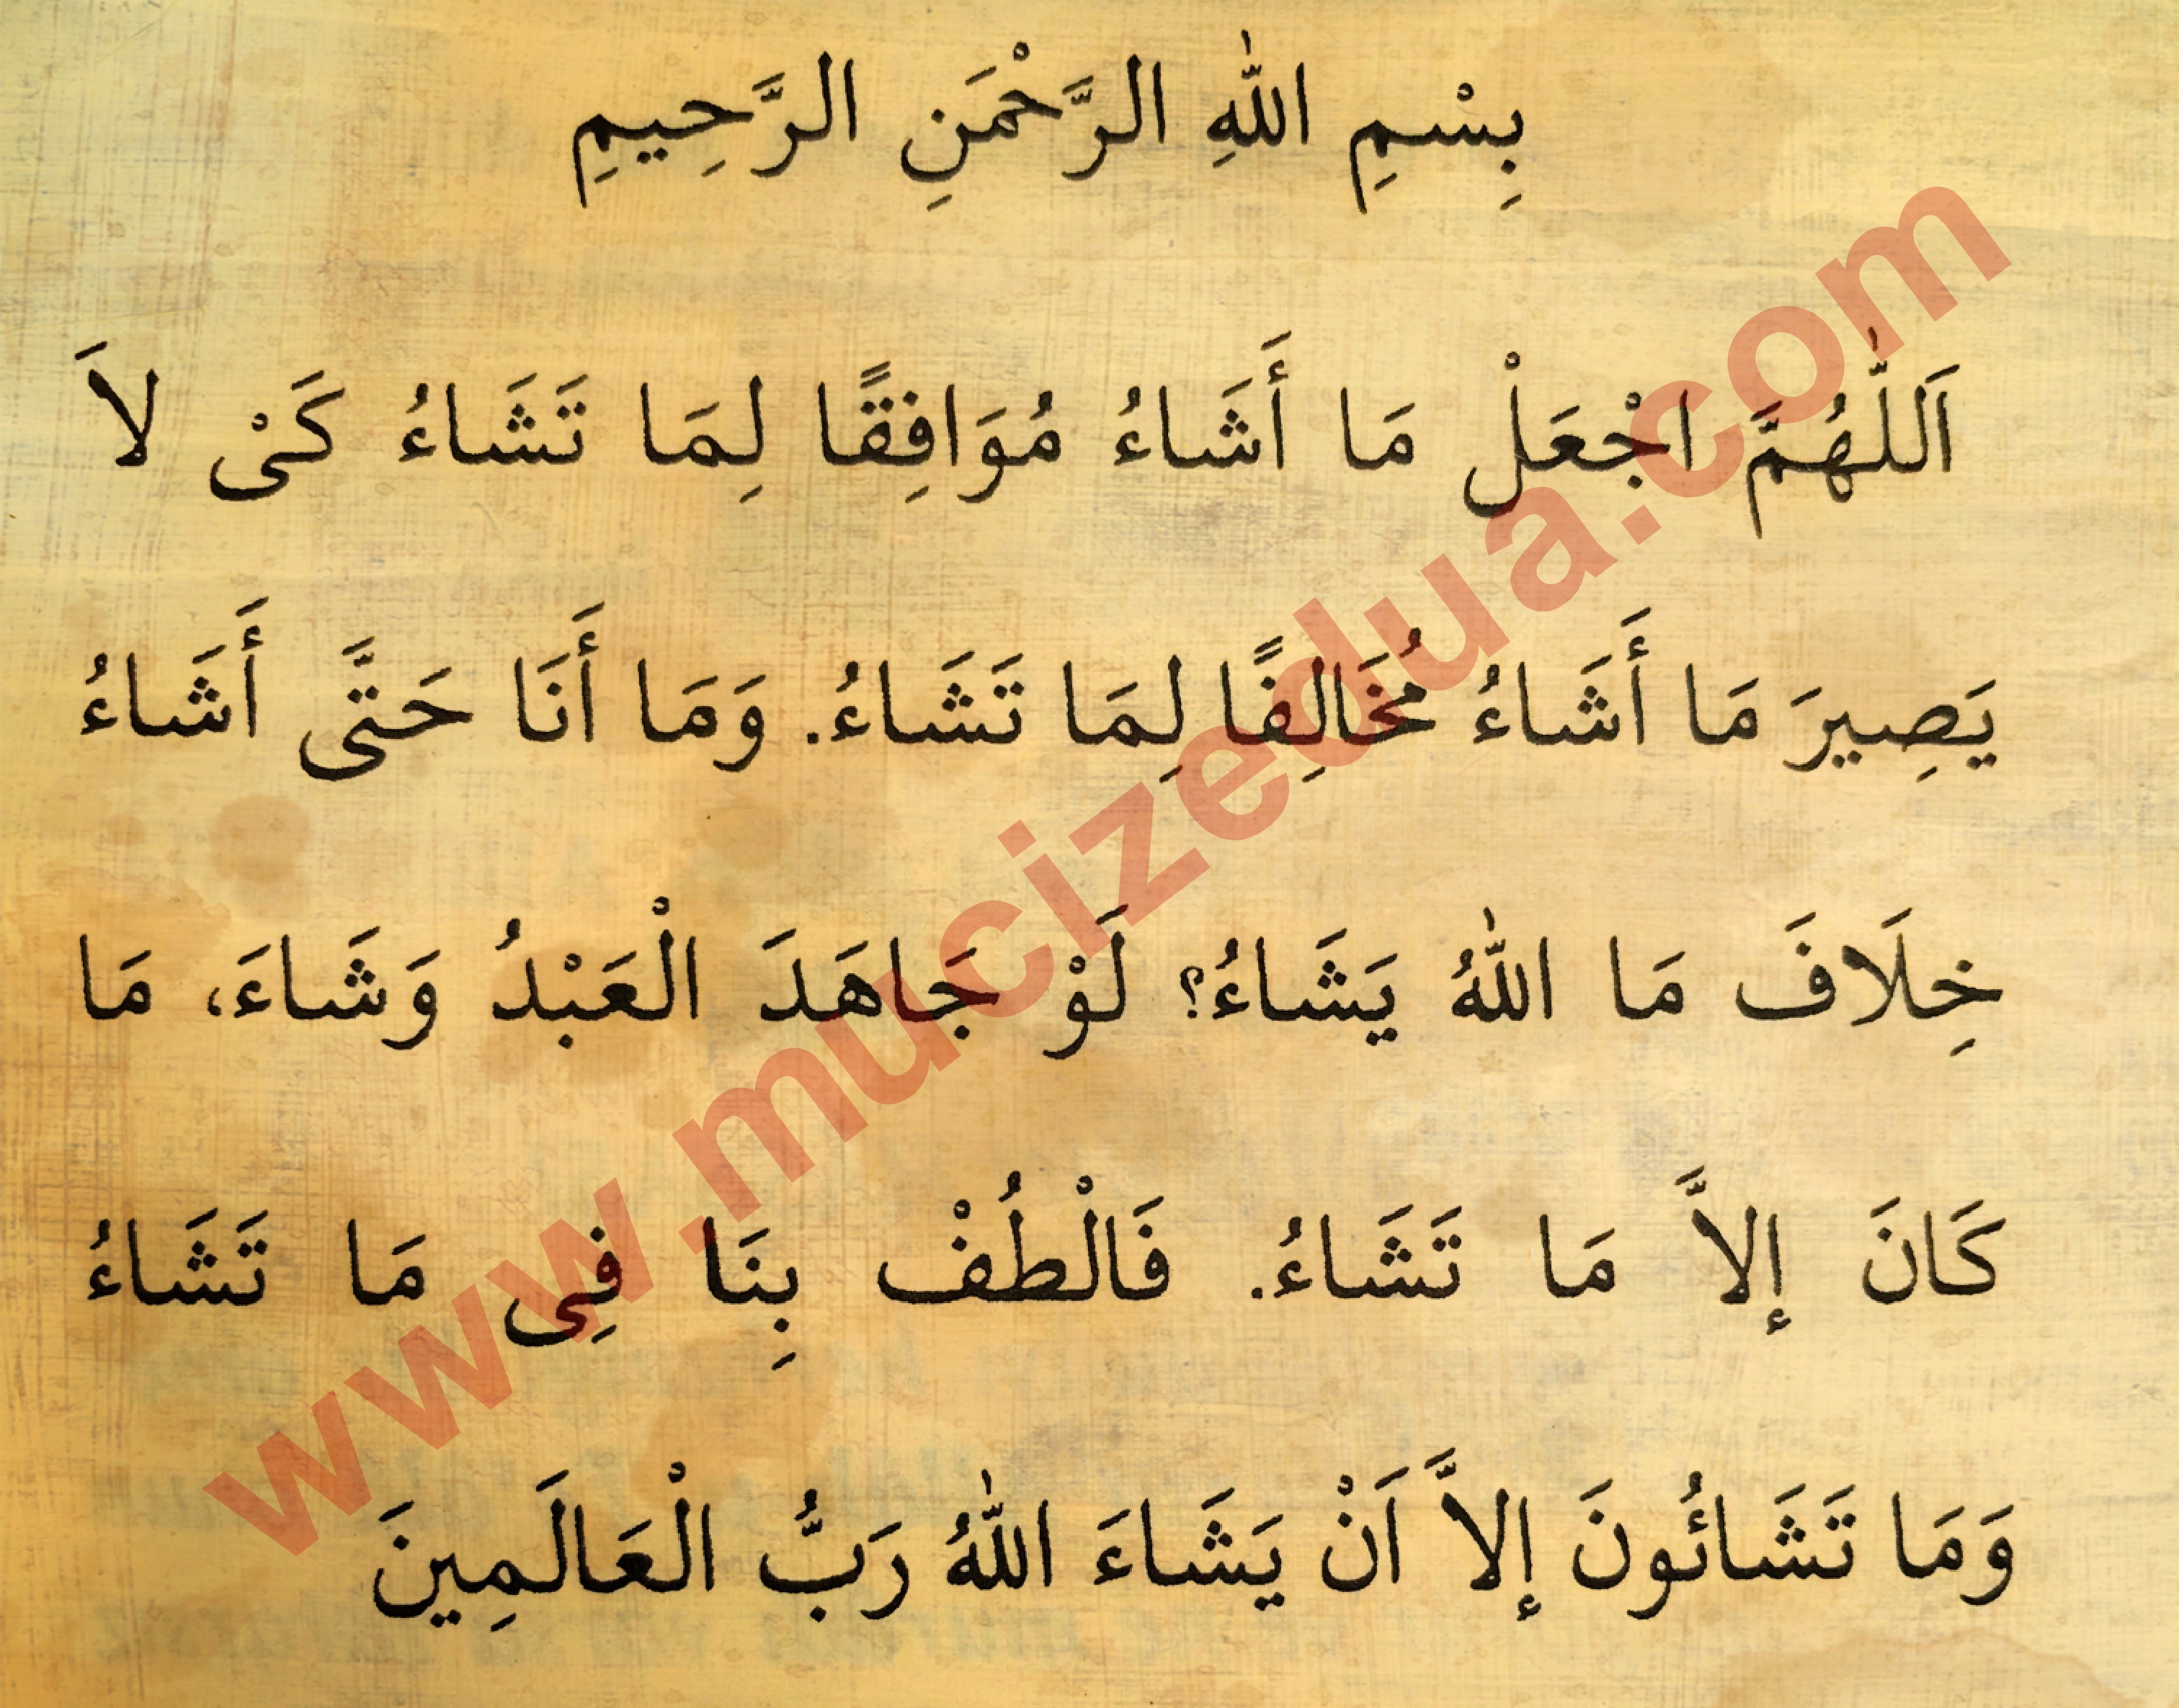 بِسْمِ اللّٰهِ الرَّحْمَنِ الرَّحِيمِ
اَللّٰهُمَّ اجْعَلْ مَا أَشَاءُ مُوَافِقًا لِمَا تَشَاءُ كَىْ لاَ
يَصِيرَ مَا أَشَاءُ مُخَالِفًا لِمَا تَشَاءُ. وَمَا أَنَا حَتَّى أَشَاءُ
خِلَافَ مَا اللّٰهُ يَشَاءُ؟ لَوْ جَاهَدَ الْعَبْدُ وَشَاءَ، مَا
كَانَ إِلاَّ مَا تَشَاءُ. فَالْطُفْ بِنَا فِى مَا تَشَاءُ
وَمَا تَشَائُونَ إِلاَّ اَنْ يَشَاءَ اللّٰهُ رَبُّ الْعَالَمِينَ
www.mucizedua.com